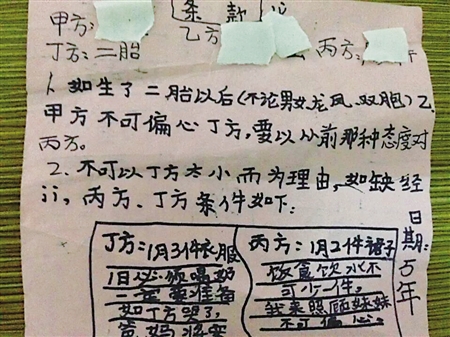 条款
甲方:
乙方
丙方:
丁方:二胎
1、如生了二胎以后(不论男女龙凤、双胞)乙、
甲方不可偏心丁方,要以从前那种态度对
丙方。
2、不可以丁方太小而为理由,如缺经
济,丙方、丁方条件如下:
日期:5年
丁方:1月3件衣服
1日必须喝奶
一定要准备
如丁方哭了,
爸妈将要
丙方:1月2件裙子
饭食饮水不
可少一件。
我来照顾妹妹
不可偏心。